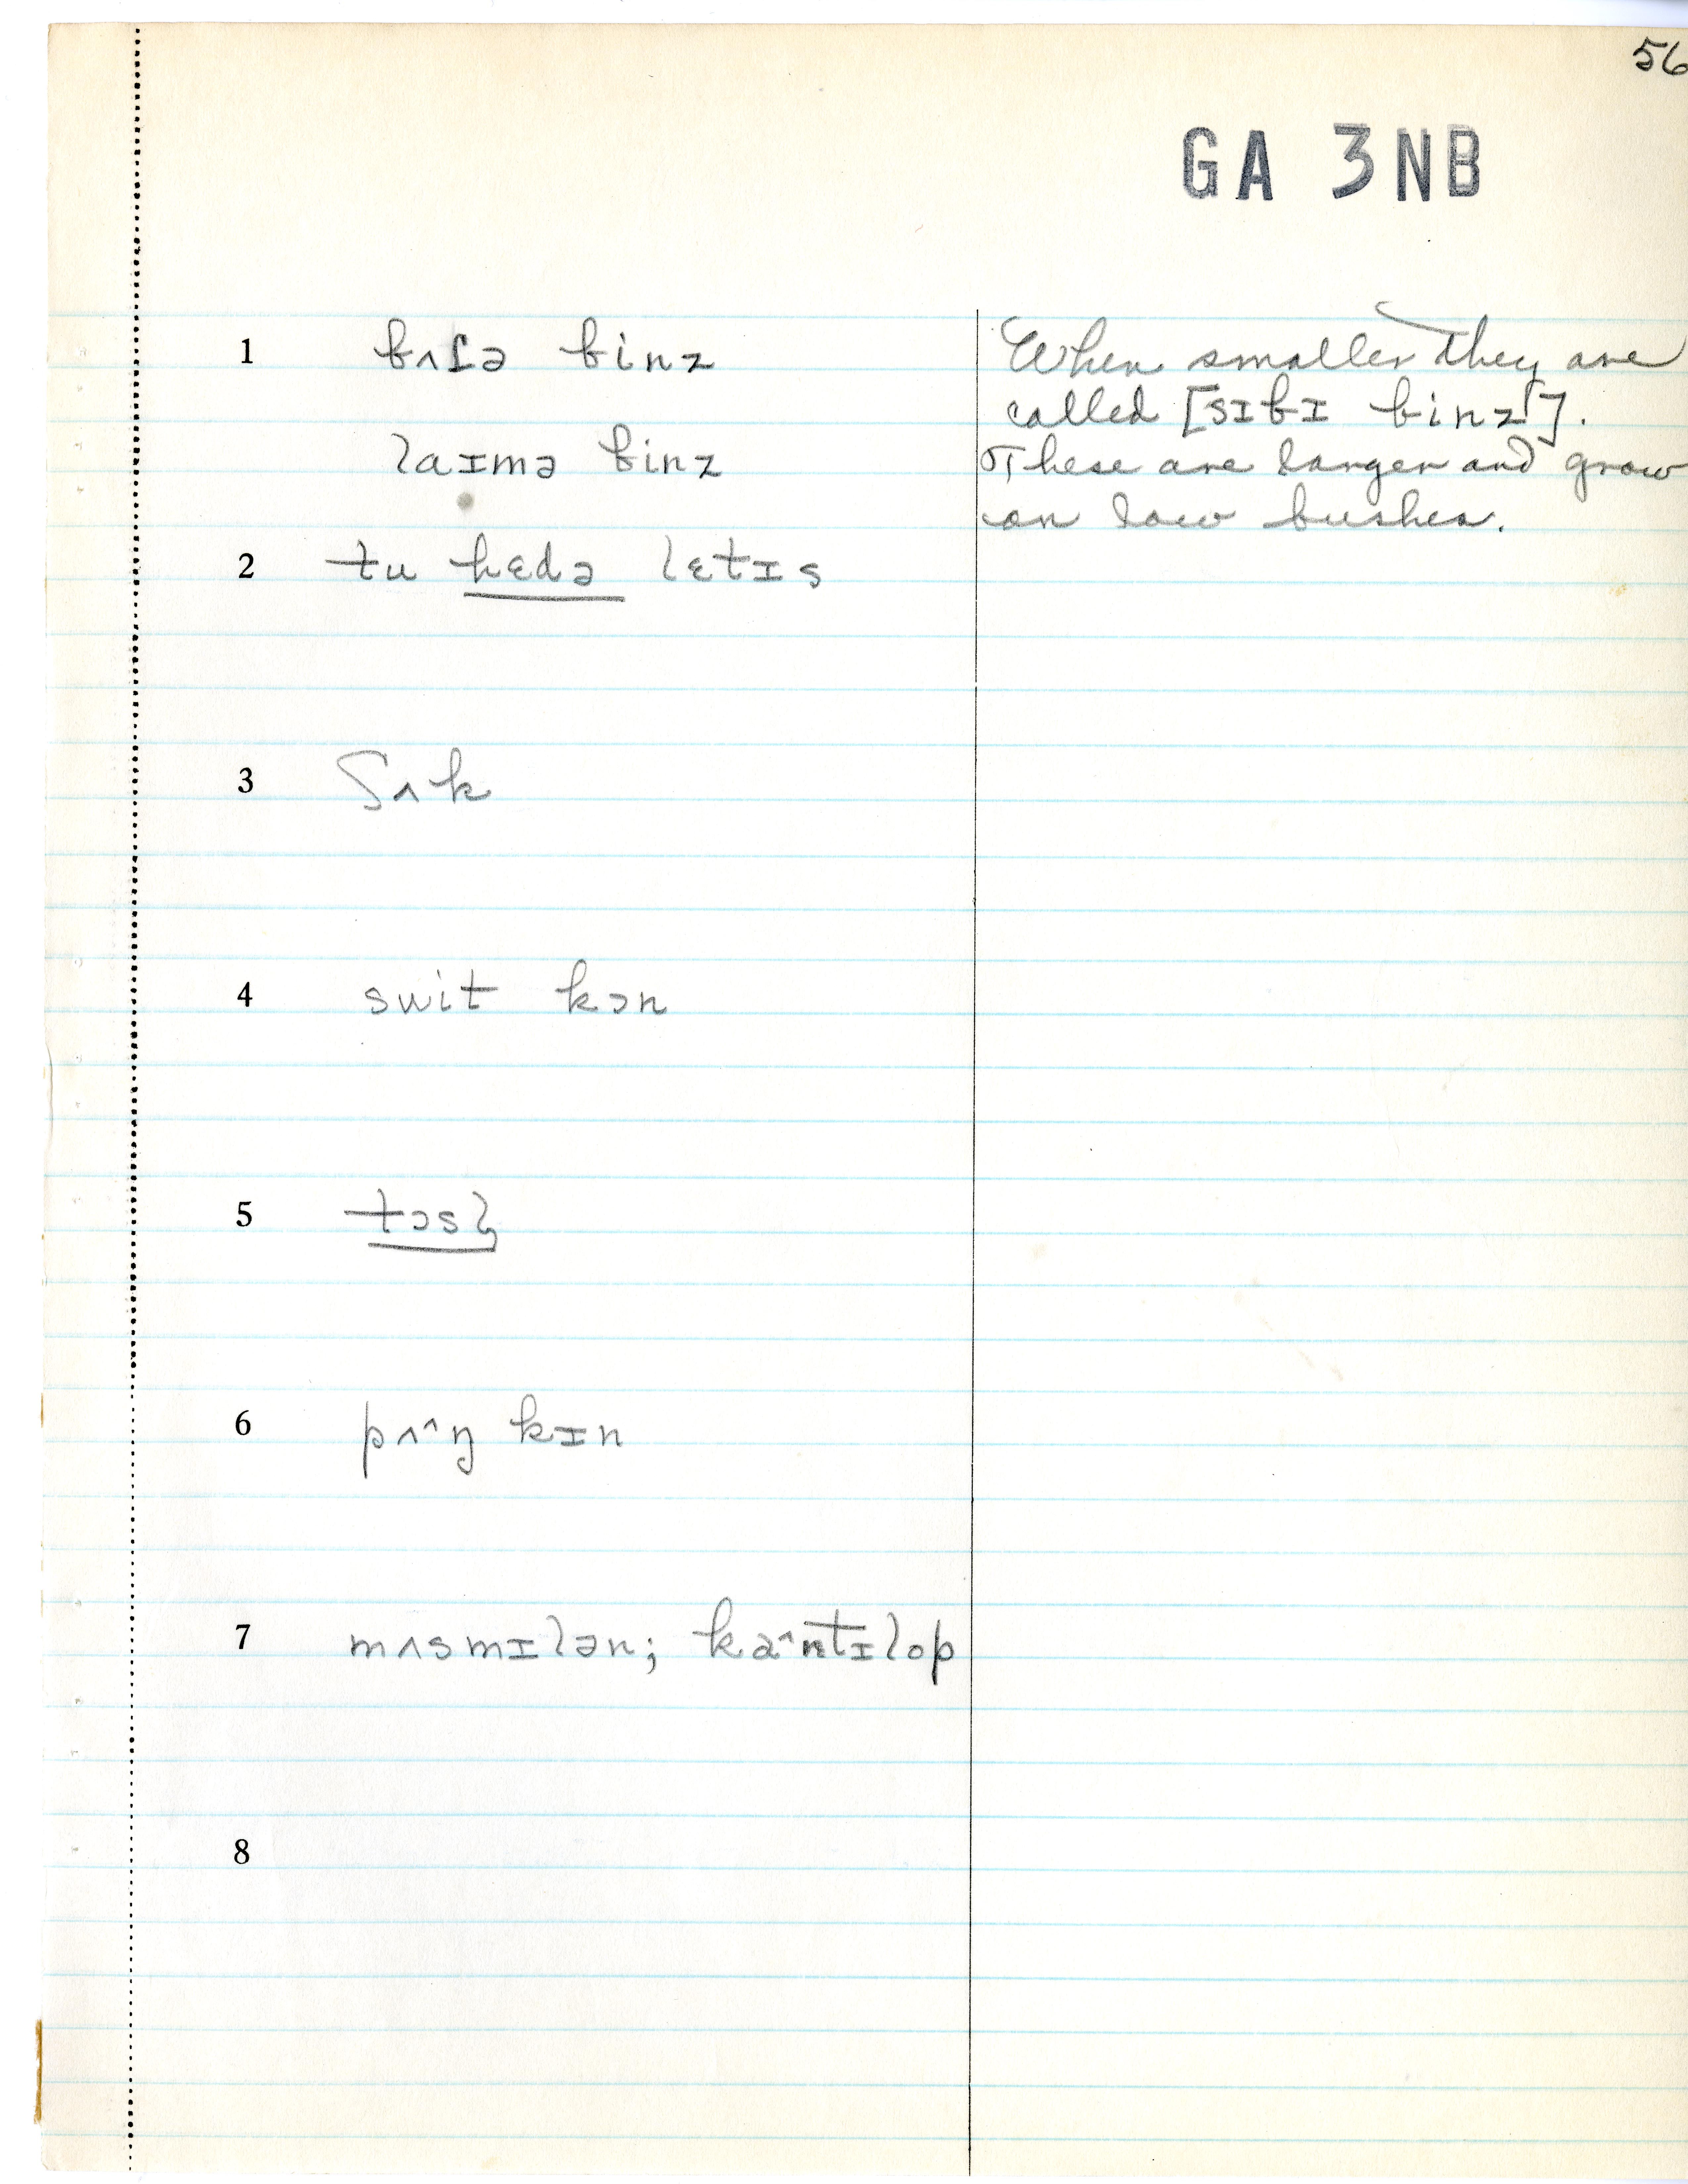 56
GA 3NB
1 bʌɾə binz
When smaller they are
called [sɪbɪ binz].
laɪmə binz
These are larger and grow
on low bushes.
2 tu hɛdə lɛtɪs
3 ʃʌk
4 swit kɔn
5 tɔsl̩
6 pʌ^ŋ kɪn
7 mʌsmɪlən; ka^ntɪlop
8